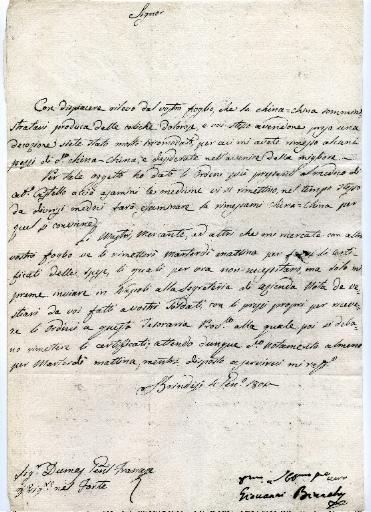 Con dispiacere rilevo dal vostro foglio, che la china-china sommini-
stratasi produca delle coliche dolorose, e voi stesso avendone preso una
decozione siete stato molto incomodato, per cui mi avete rimesso alcuni
pezzi di d.ª china-china, e desiderate nell'avenire della migliore.
Per tale oggetto ho dati li ordini più pressanti al medico di
Castello acciò esamini le medicine vi si rimettono, nel tempo stesso
da diversi medici farò esaminare la rimessami china-china per
quel si conviene
Mastro, Mercante, ed altri che mi mercate con altro
vostro foglio ve li rimetterò Martedì mattina per li certi-
ficati delle spese, li quali per ora non necessitano, ma solo mi
preme inviare in Napoli alla Segreteria di azienda Nota de ve-
stiari da voi fatti a vostri soldati, con li prezzi proprj per riceve-
re li ordini a questa Tesoreria Prov.le alla quale poi si debba-
no rimettere li certificati; attendo dunque d.º Notamento almeno
per Martedì mattina, mentre disposto a servirvi mi raff.º
Brindisi
Sig.r Dumas
nel Forte
Giovanni